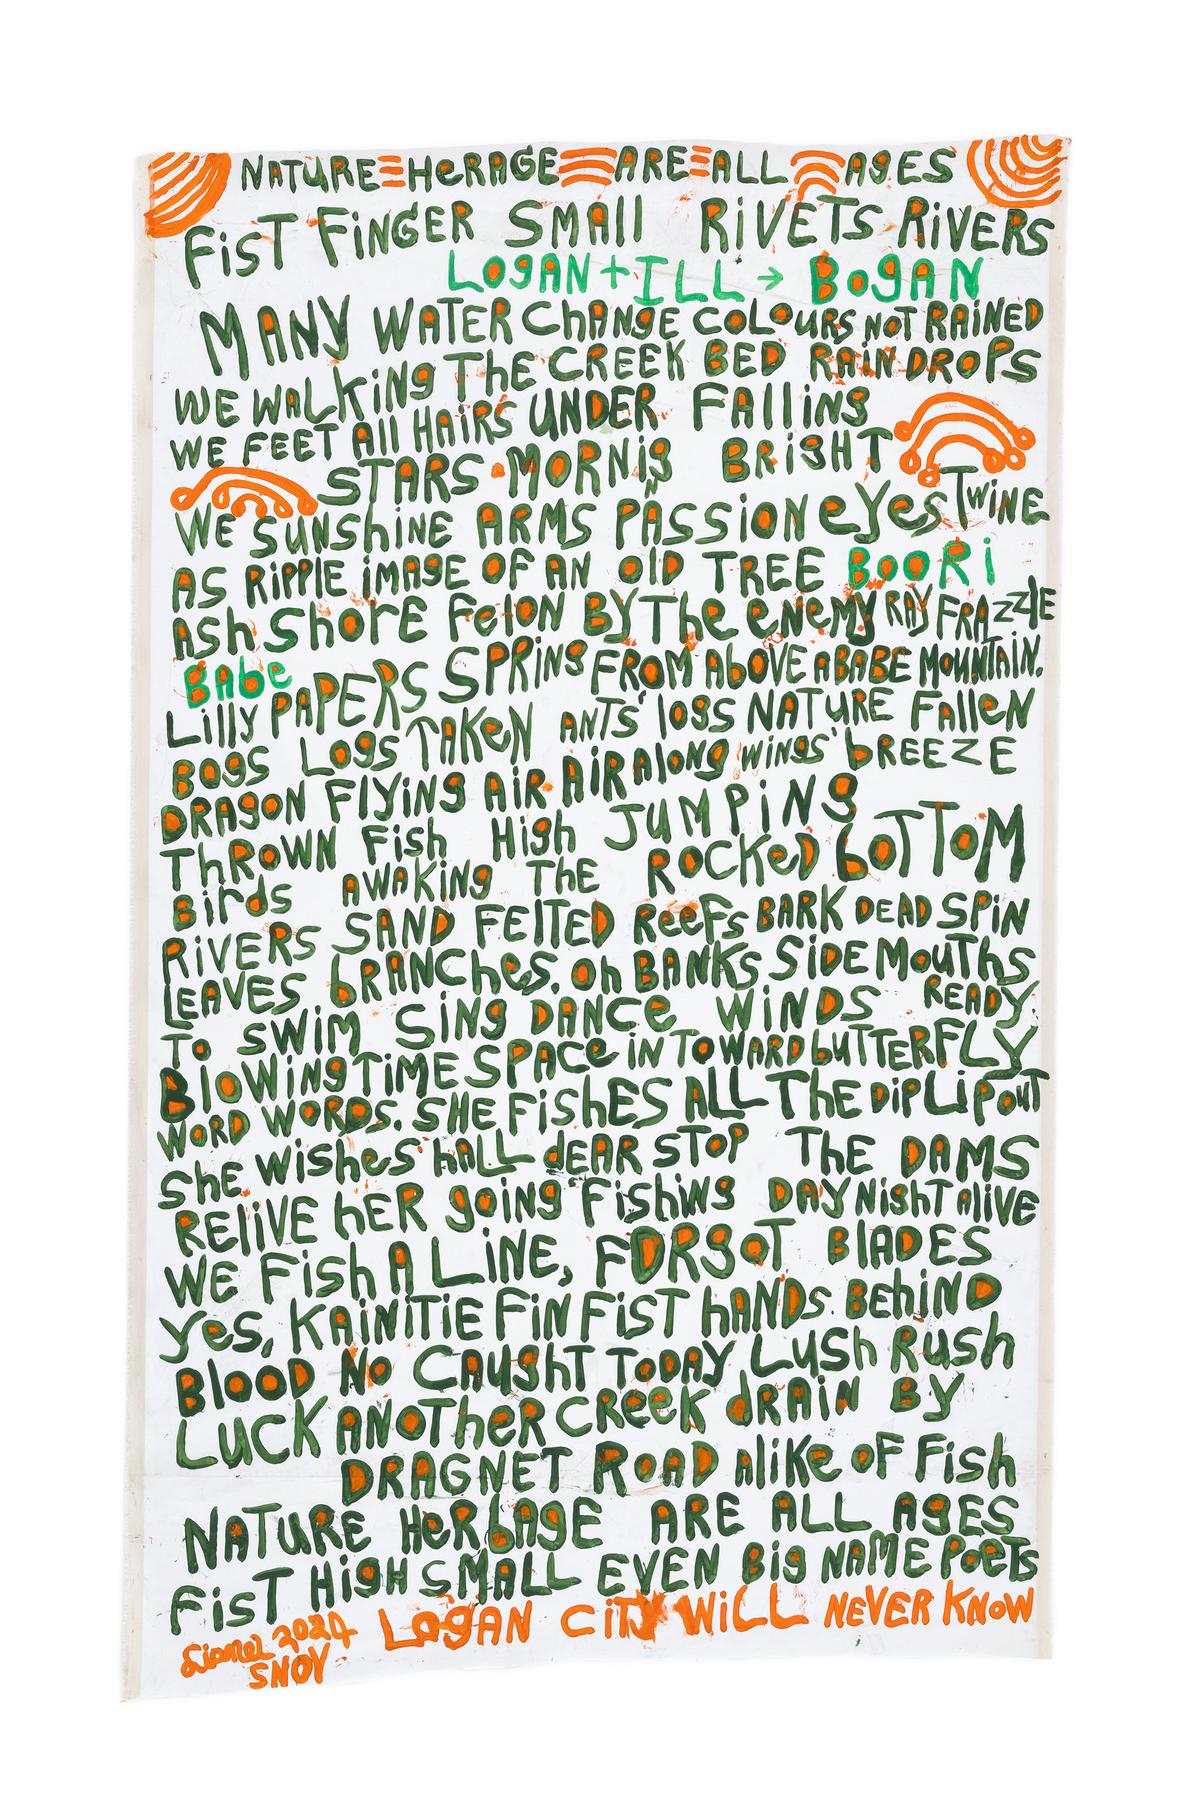 NATURE HERAGE ARE ALL AGES
FiST FiNGER SMAll RiVETS RiVERS
LOGAN + ILL → BOgAN
MANY WATER ChANGE COLOURS NOT RAINED
WE WALKING THE CREEK BED RAINDROPS
WE FEET All HAIRS UNDER FAlliNg
STARS MORNig BRigHT
WE SUNShiNE ARMS PASSiON eYes TwiNE
AS RiPPlE iMAGE OF AN OlD TREE BOORi
ASh ShORE FeloN BY The eNeMY RAY FRAZZlE
Babe
Lilly PAPERS SPRiNg FROM AbOVE A BABE MOUNTAiN.
BOgS LOgS TAKeN ANTS' lOgS NATURE FAlleN
DRAGON FlYiNg AiR AiR AlONg wiNgS' bREEZE
ThROWN FiSh High JUMPiNG
BiRdS AWAKiNg THE ROCKeD bOTTOM
RiVERS SAND FElTED ReeFs BARK DEAD SPiN
LEAVES. bRANChes. Oh BANKS SiDE MOuThS
To SWiM SiNg DANCe WiNDS READY
BlOWiNg TiME SPACe iN TOWARD bUTTERFLY
WORD WORDS. SHE FiShES ALL THE DiP LiP OUT
She WiShes' hALL dEAR STOP THE DAMS
REliVE hER gOiNg FiShiNg DAY NighT AliVE
WE FiSh A LiNE, FORgOT BlADES
Yes, KAiNiTiE FiN FiST hANDs. BEhiND
BlOOD NO CAUghT TODAY LUSh RUSh
LUCK ANOTheR CReeK dRAiN BY
DRAGNET ROAD AliKe OF FiSh
NATURE HeRbAGE ARE ALL AgES
FiST HigH SMALL EVEN Big NAME PoETS
LOgAN CiTY WiLL NEVER KNOW
Lionel 2024
SNOY